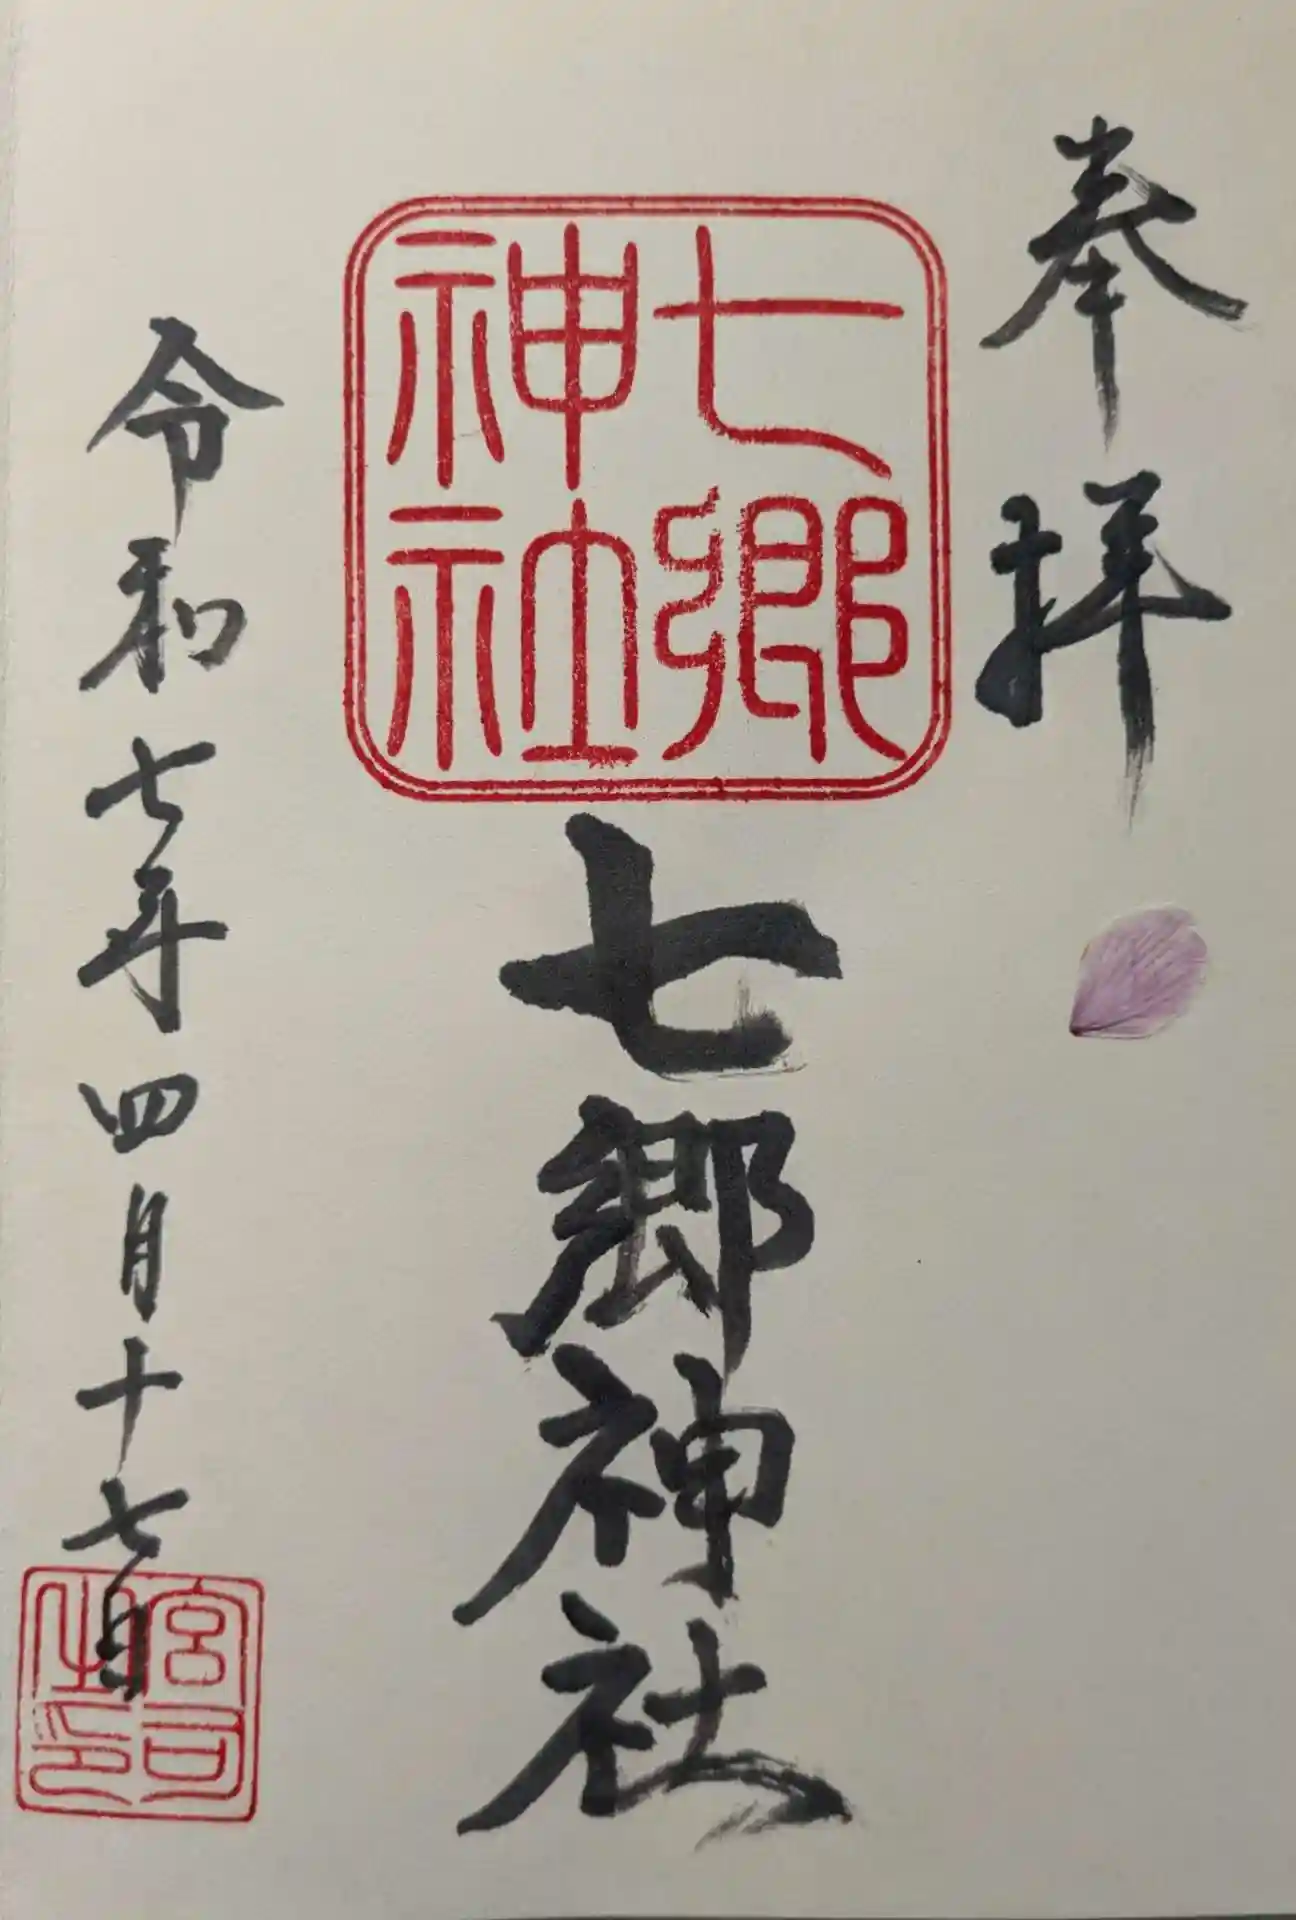 奉拝
七郷
神社
七郷神社
令和七年四月十七日
宮司
之印